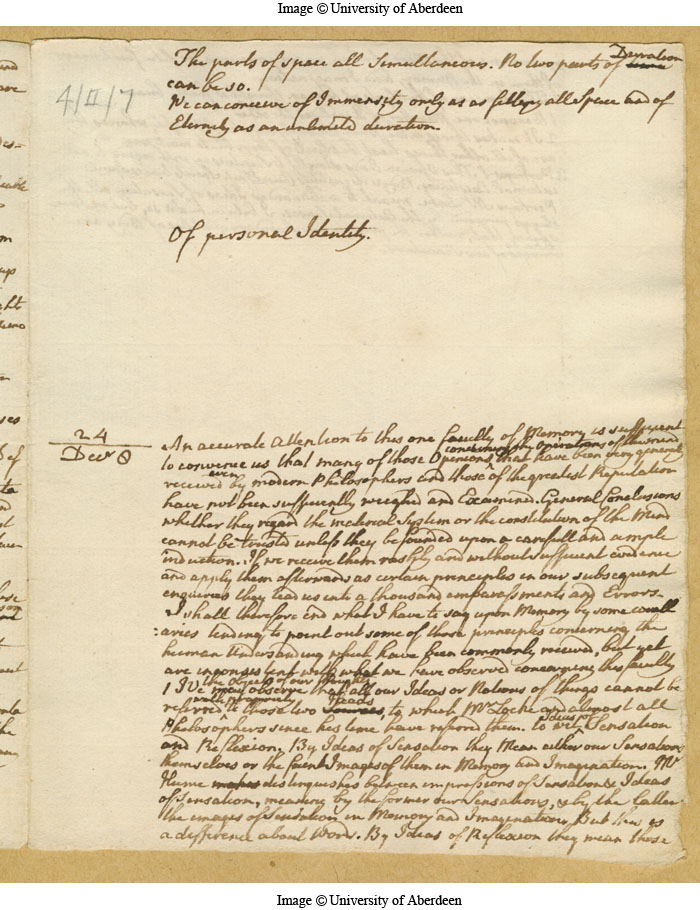 Image © University of Aberdeen
The parts of space all Simultaneous. No two parts of time Duration
can be so.
4/II/7
We can conceive of Immensity only as as filling all Space and of
Eternity as an unlimited duration.
Of personal Identity.
24
Decr
An accurate Attention to this one faculty of Memory is sufficient
to convince us that many of those Opinions concerning the Operations of the mind that have been very generally
received even by modern Philosophers and those of the greatest Reputation
have not been sufficiently weighed and Examined. General Conclusions
whether they regard the material System or the constitution of the Mind
cannot be trusted unless they be founded upon a carefull and ample
induction. If we receive them rashly and without sufficient evidence
and apply them afterwards as certain principles in our subsequent
enquiries they lead us into a thousand embarassments and Errors.
I shall therefore end what I have to say upon Memory by some coroll
aries tending to point out some of those principles concerning the
human Understanding which have been commonly received, but yet
are inconsistent with what we have observed concerning this faculty
1 We may observe that all the objects of our thoughts our Ideas or Notions of things cannot be
referred with propriety to those two Sources, Heads to which Mr Locke and almost all
Philosophers since his time have referred them. to wit Ideas of Sensation
and Reflexion, By Ideas of Sensation they Mean either our Sensations
themselves or the faint Images of them in Memory and Imagination. Mr
Hume makes distinguishes between impressions of Sensation & Ideas
of Sensation, meaning by the former our Sensations, & by the latter
the images of Sensation in Memory and Imagination, But this is
a difference about Words. By Ideas of Reflexion they mean those
Image © University of Aberdeen